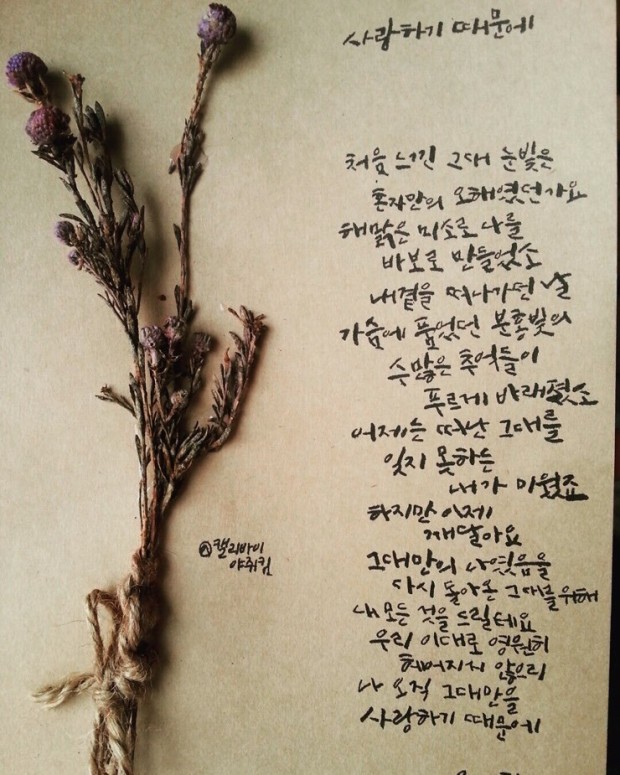 사랑하기 때문에
처음 느낀 그대 눈빛은
혼자만의 오해였던가요
해맑은 미소로 나를
바보로 만들었소
내곁을 떠나가던 날
가슴에 품었던 분홍빛의
수많은 추억들이
푸르게 바래졌소
어제는 떠난 그대를
잊지 못하는
내가 미웠죠
하지만 이제
깨달아요
그대만의 나였음을
다시 돌아온 그대를 위해
내 모든 것을 드릴테요
우리 이대로 영원히
헤어지지 않으리
나 오직 그대만을
사랑하기 때문에
캘리바이
야쥐킴